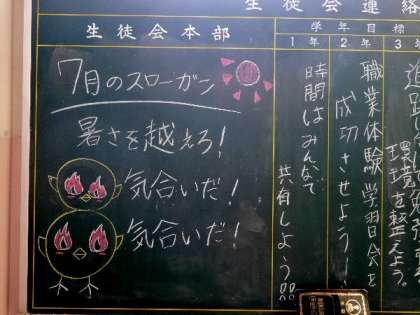 生徒会連絡
生徒会本部
7月のスローガン
暑さを越えろ!
気合いだ!
気合いだ!
学年目標
1年
時間はみんなで
共有しよう!!
2年
職業体験学習会を
成功させよう!
3
環境を整えよう。